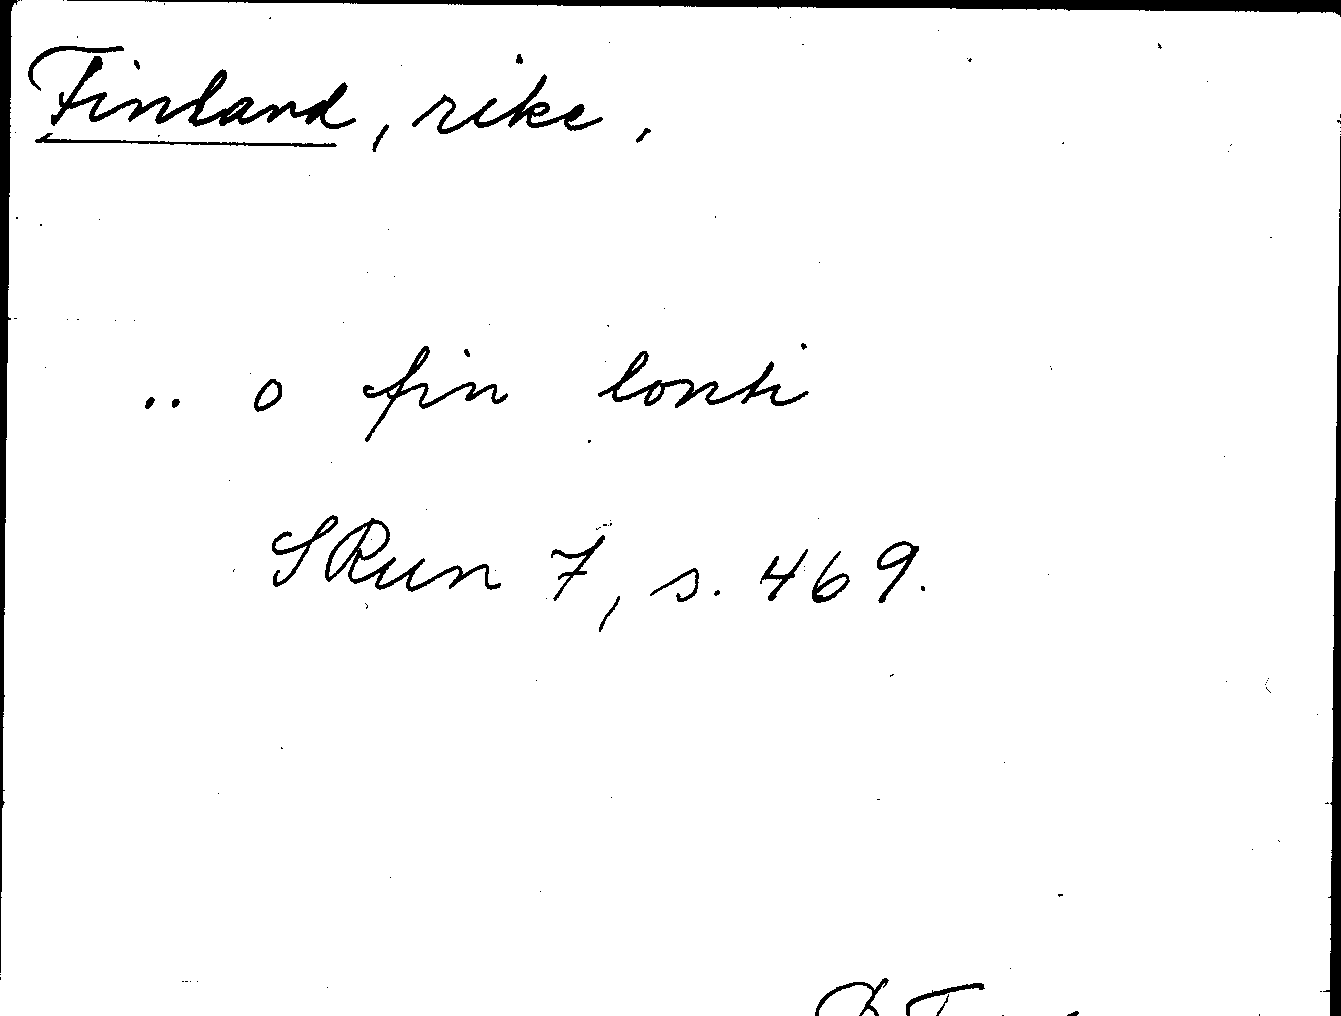 Finland, rike.
.. o fin lonti
SRun 7, s. 469.